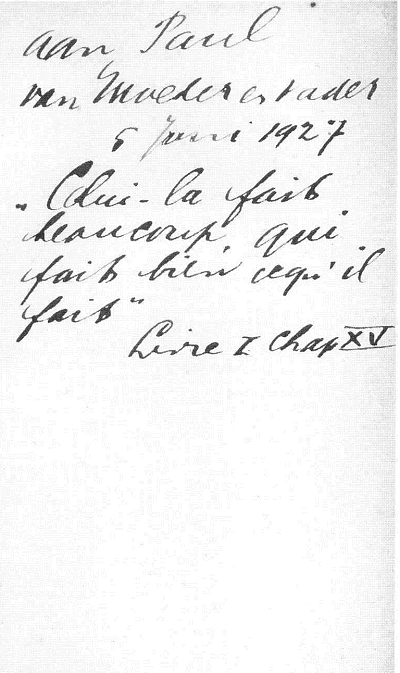 aan Paul
van Moeder en Vader
5 Juni 1927
„Celui-la fait
beaucoup, qui
fait bien ce qu'il
fait"
Livre I chap XV